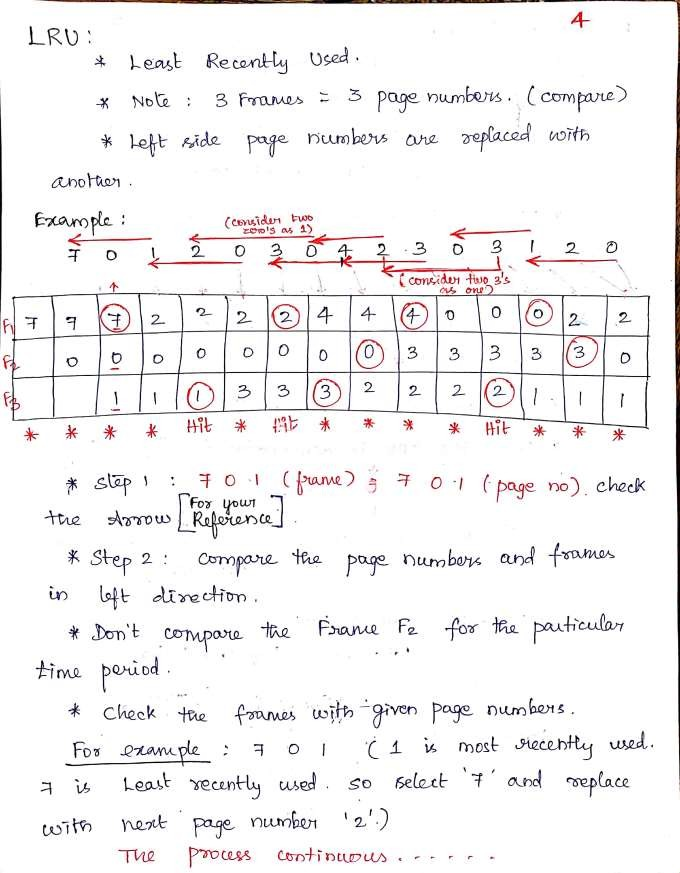 4
LRU :
* Least Recently Used.
* Note : 3 Frames = 3 page numbers. (compare)
* Left side page numbers are replaced with
another.
Example :
(consider two
zero's as 1)
7 0 1 2 0 3 0 4 2 3 0 3 1 2 0
(consider two 3's
as one)
F1 7 7 7 2 2 2 2 4 4 4 0 0 0 2 2
F2 0 0 0 0 0 0 0 0 3 3 3 3 3 0
F3 1 1 1 3 3 3 2 2 2 2 1 1 1
* * * * Hit * Hit * * * * Hit * * *
* Step 1 : 7 0 1 (frame) = 7 0 1 (page no). check
the Arrow [For your
Reference]
* Step 2 : compare the page numbers and frames
in left direction.
* Don't compare the Frame F2 for the particular
time period.
* Check the frames with given page numbers.
For example : 7 0 1 (1 is most recently used.
7 is Least recently used. so select '7' and replace
with next page number '2'.)
The process continuous......